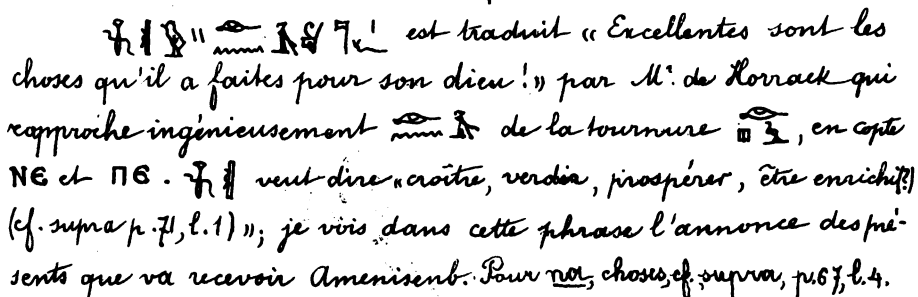 est traduit « Excellentes sont les
choses qu'il a faites pour son dieu ! » par Mr. de Horrack qui
rapproche ingénieusement de la tournure , en copte
ⲛⲉ et ⲡⲉ . veut dire « croître, verdir, prospérer, être enrichi(?)
(cf. supra p. 71, l. 1) » ; je vois dans cette phrase l'annonce des pré-
sents que va recevoir Amenisenb. Pour na, choses, cf. supra, p. 67, l. 4.